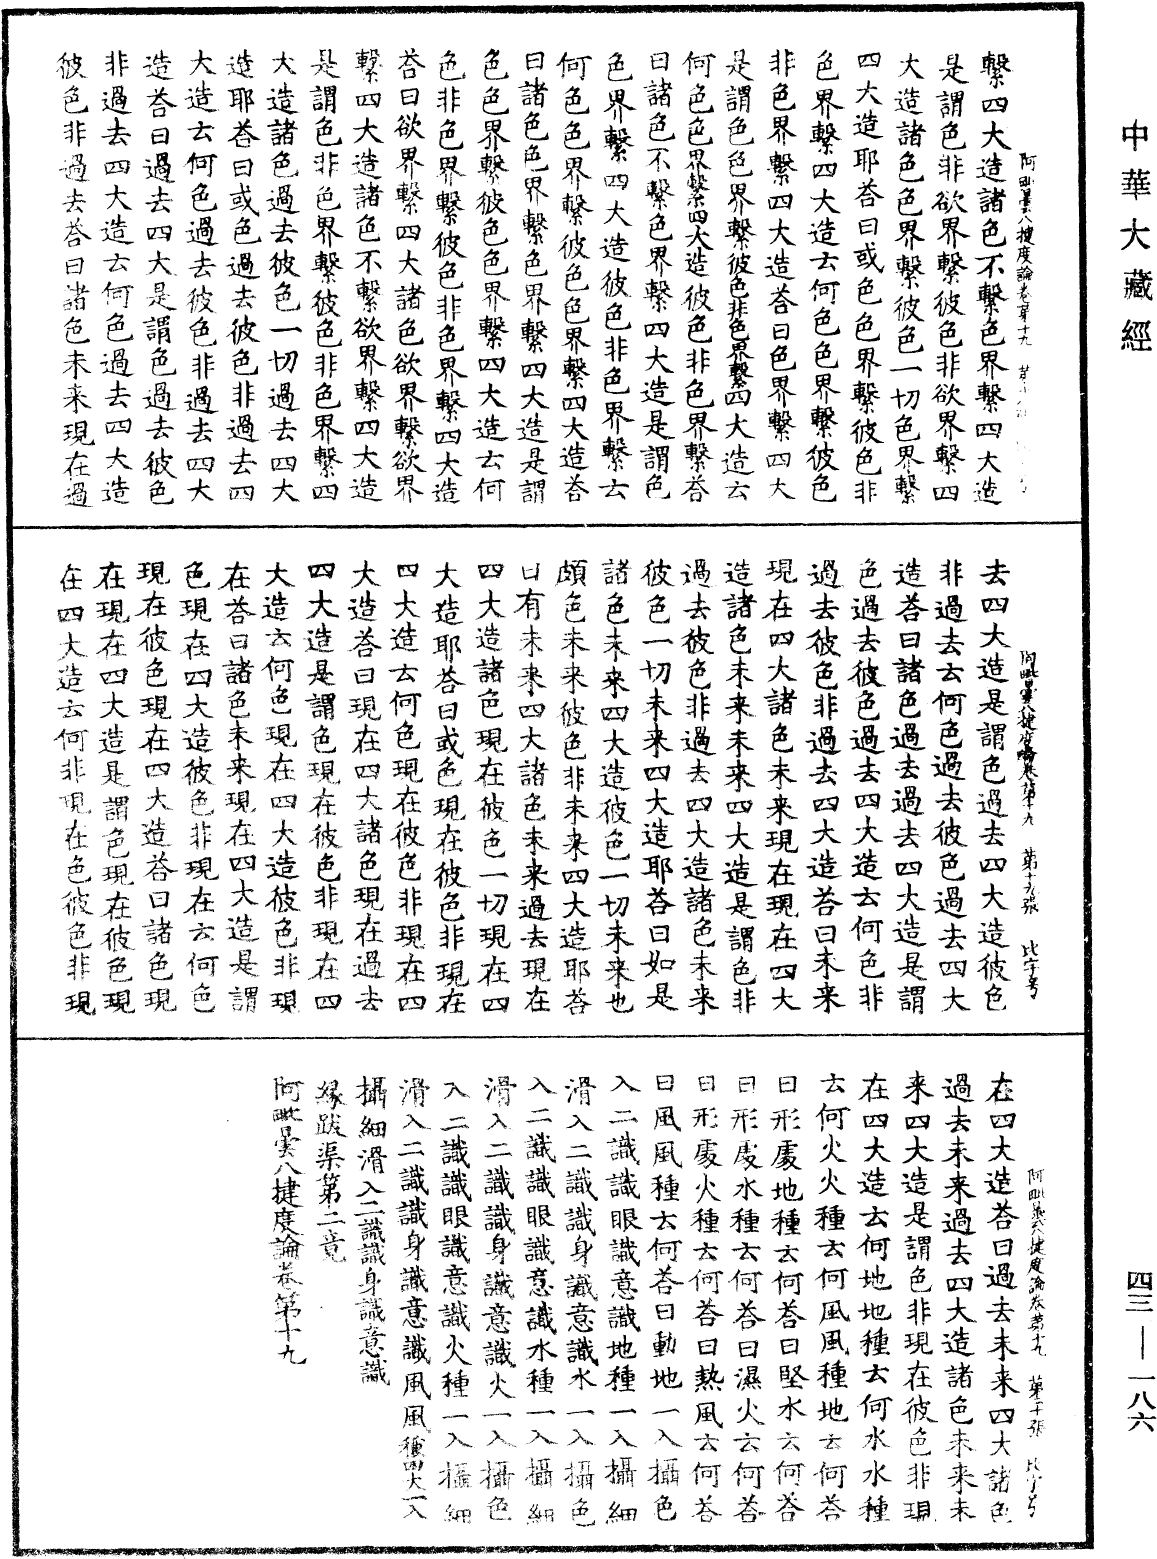 中華大藏經
阿毗曇八揵度論卷第十九
繫四大造諸色不繫色界繫四大造
是謂色非欲界繫彼色非欲界繫四
大造諸色色界繫彼色一切色界繫
四大造耶荅曰或色色界繫彼色非
色界繫四大造云何色色界繫彼色
非色界繫四大造荅曰色界繫四大
是謂色色界繫彼色非色界繫四大造云
何色色界繫四大造彼色非色界繫荅
曰諸色不繫色界繫四大造是謂色
色界繫四大造彼色非色界繫云
何色色界繫彼色色界繫四大造荅
曰諸色色界繫色界繫四大造是謂
色色界繫彼色色界繫四大造云何
色非色界繫彼色非色界繫四大造
荅曰欲界繫四大諸色欲界繫欲界
繫四大造諸色不繫欲界繫四大造
是謂色非色界繫彼色非色界繫四
大造諸色過去彼色一切過去四大
造耶荅曰或色過去彼色非過去四
大造云何色過去彼色非過去四大
造荅曰過去四大是謂色過去彼色
非過去四大造云何色過去四大造
彼色非過去荅曰諸色未来現在過
阿毗曇八揵度論卷第十九 第十九張 比字号
去四大造是謂色過去四大造彼色
非過去云何色過去彼色過去四大
造荅曰諸色過去過去四大造是謂
色過去彼色過去四大造云何色非
過去彼色非過去四大造荅曰未来
現在四大諸色未来現在現在四大
造諸色未来未来四大造是謂色非
過去彼色非過去四大造諸色未来
彼色一切未来四大造耶荅曰如是
諸色未来四大造彼色一切未来也
頗色未来彼色非未来四大造耶荅
曰有未来四大諸色未来過去現在
四大造諸色現在彼色一切現在四
大造耶荅曰或色現在彼色非現在
四大造云何色現在彼色非現在四
大造荅曰現在四大諸色現在過去
四大造是謂色現在彼色非現在四
大造云何色現在四大造彼色非現
在荅曰諸色未来現在四大造是謂
色現在四大造彼色非現在云何色
現在彼色現在四大造荅曰諸色現
在現在四大造是謂色現在彼色現
在四大造云何非現在色彼色非現
阿毗曇八揵度論卷第十九 第二十張 比字号
在四大造荅曰過去未来四大諸色
過去未来過去四大造諸色未来未
来四大造是謂色非現在彼色非現
在四大造云何地地種云何水水種
云何火火種云何風風種地云何荅
曰形處地種云何荅曰堅水云何荅
曰形處水種云何荅曰濕火云何荅
曰形處火種云何荅曰熱風云何荅
曰風風種云何荅曰動地一入攝色
入二識識眼識意識地種一入攝細
滑入二識識身識意識水一入攝色
入二識識眼識意識水種一入攝細
滑入二識識身識意識火一入攝色
入二識識眼識意識火種一入攝細
滑入二識識身識意識風風種四大一入
攝細滑入二識識身識意識
緣跋渠第二竟
阿毗曇八揵度論卷第十九
四三—一八六